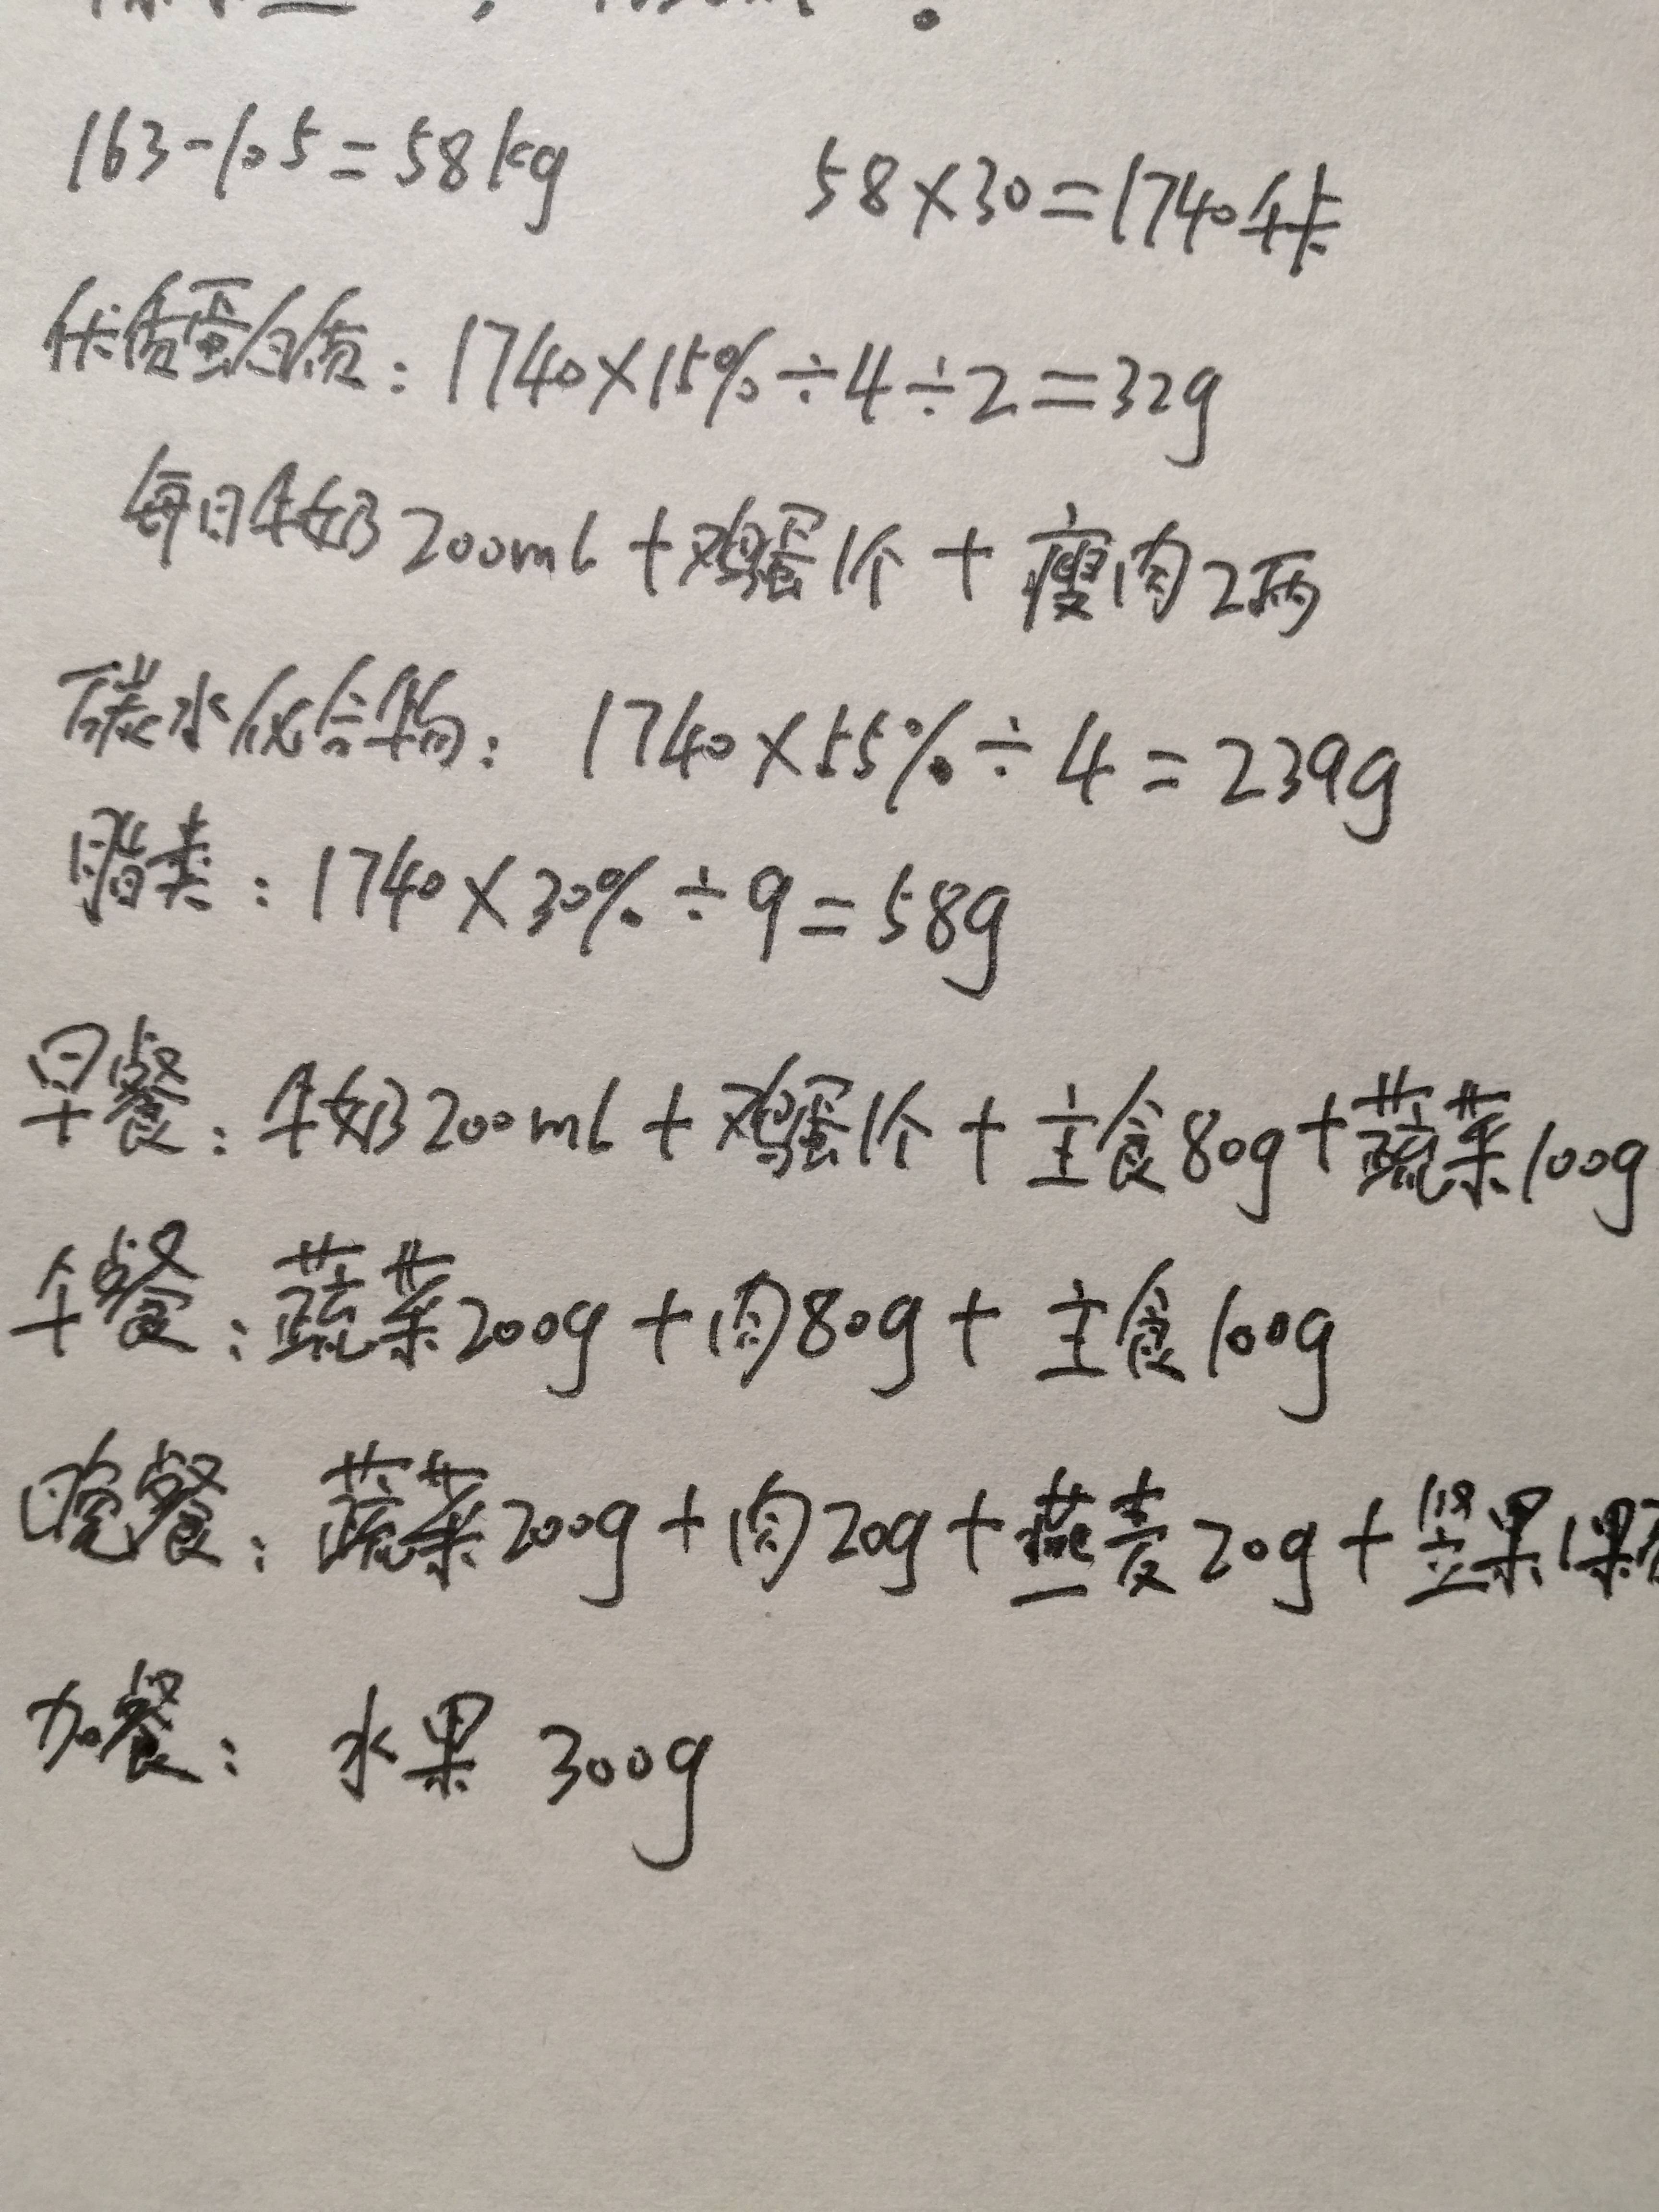 163-105=58kg 58×30=1740千卡
优质蛋白质：1740×15%÷4÷2=32g
每日牛奶200ml+鸡蛋1个+瘦肉2两
碳水化合物：1740×55%÷4=239g
脂类：1740×30%÷9=58g
早餐：牛奶200ml+鸡蛋1个+主食80g+蔬菜100g
午餐：蔬菜200g+肉80g+主食100g
晚餐：蔬菜200g+肉20g+燕麦20g+坚果1
加餐：水果 300g